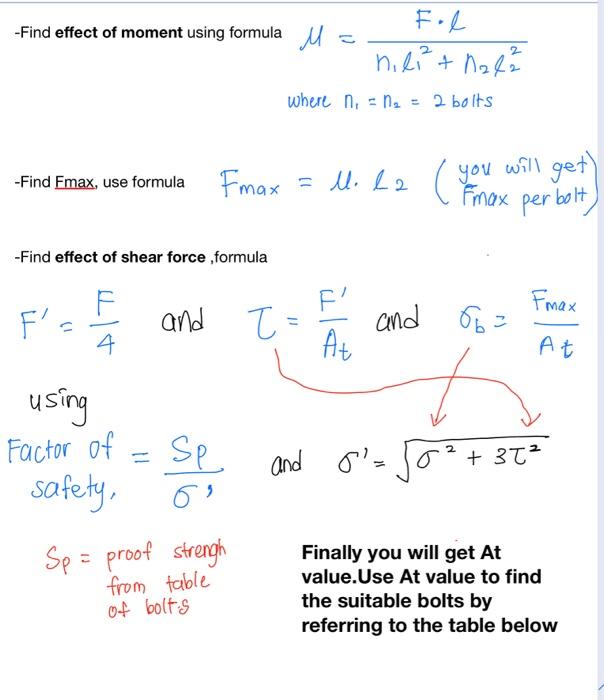 -Find effect of moment using formula M = F·l / n₁l₁² + n₂l₂²
where n₁ = n₂ = 2 bolts
-Find Fmax, use formula Fmax = M. l₂ (you will get Fmax per bolt)
-Find effect of shear force ,formula
F' = F/4 and τ = F'/At and σb = Fmax/At
using
Factor of safety, = Sp/σ' and σ' = √σ² + 3τ²
Sp = proof strengh
from table
of bolts
Finally you will get At
value.Use At value to find
the suitable bolts by
referring to the table below